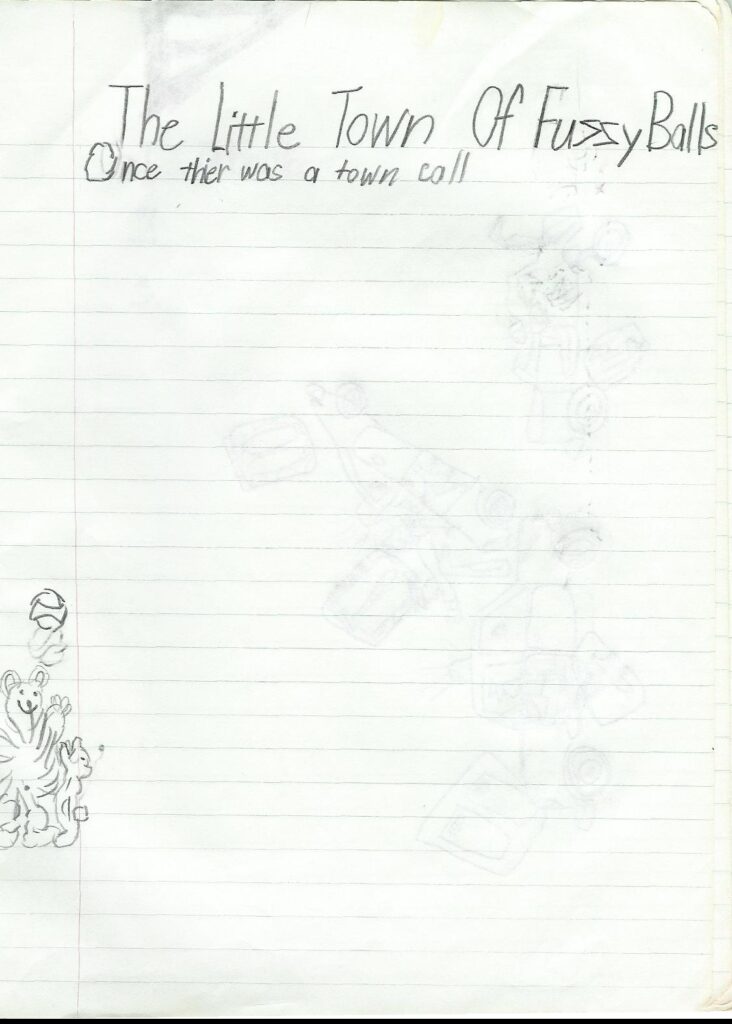 The Little Town Of Fuzzy Balls
Once thier was a town call